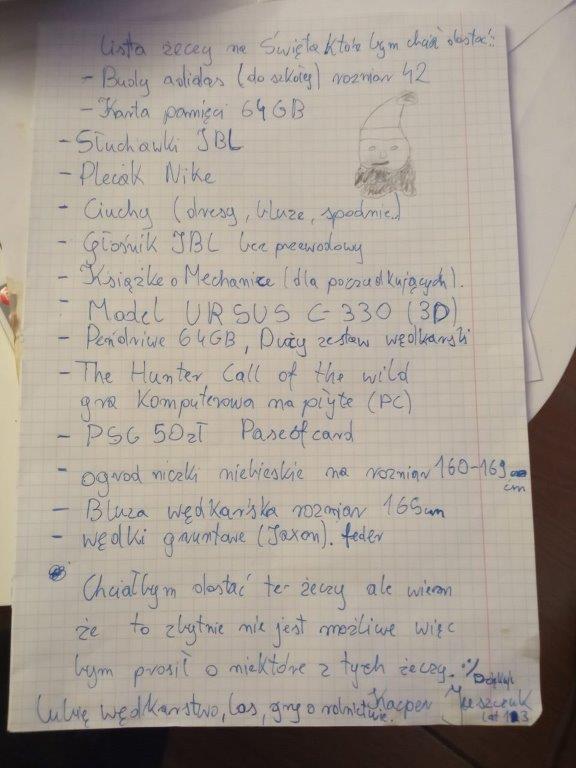 Lista żeczy na Święta które bym chciał dostać::
- Buty adidas (do szkoły) rozmiar 42
- Karta pamięci 64GB
- Słuchawki JBL
- Plecak Nike
- Ciuchy (dresy, bluze, spodnie..)
- Głośnik JBL bez przewodowy
- Książke o Mechanice (dla początkujących).
- Model URSUS C-330 (3D)
- Pendriwe 64GB, Duży zestaw wędkarski
- The Hunter Call of the wild
gra Komputerowa na płyte (PC)
- PSG 50zł Paseofcard
- ogrod niczki niebieskie na rozmiar 160-169
cm
- Bluza wędkarska rozmiar 165cm
- wędki gruntowe (Jaxon). feder
Chciałbym dostać te- żeczy ale wiem
że to zbytnie nie jest możliwe więc
bym prosił o niektóre z tych żeczy. :)
Dziękuje
Lubię wędkarstwo, las, gry o rolnictwie. Kacper
lat 13